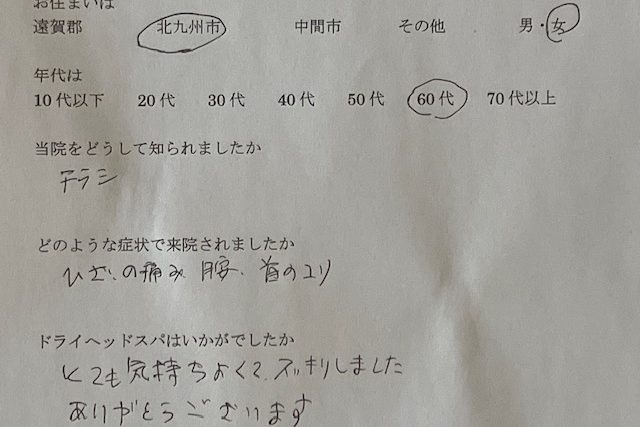 お住まいは
遠賀郡 北九州市 中間市 その他 男・女
年代は
10代以下 20代 30代 40代 50代 60代 70代以上
当院をどうして知られましたか
チラシ
どのような症状で来院されましたか
ひざの痛み 腰、首のコリ
ドライヘッドスパはいかがでしたか
とても気持ちよくて、スッキリしました
ありがとうございます